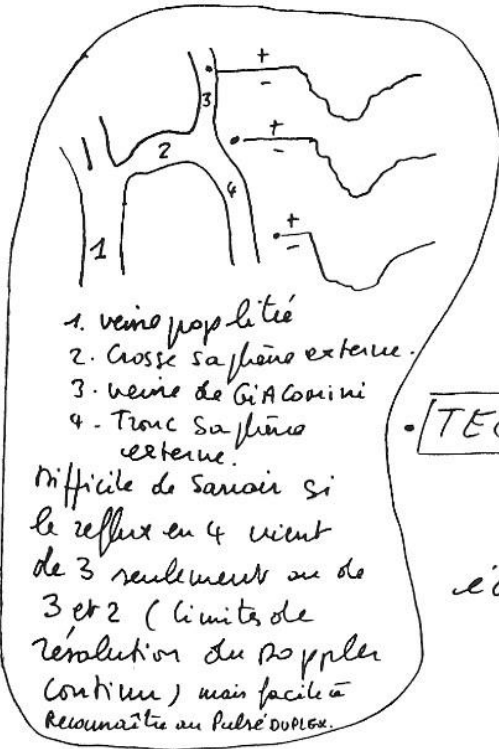 +
-
3
+
-
2
4
+
-
1
1. veine poplitée
2. Crosse saphène externe.
3. veine de GiAComini
4 - Tronc saphène
externe.
Difficile de savoir si
le reflux en 4 vient
de 3 seulement ou de
3 et 2 (limites de
résolution du Doppler
continu) mais facile à
Reconnaître au Pulsé DUPLEX.
• TEC